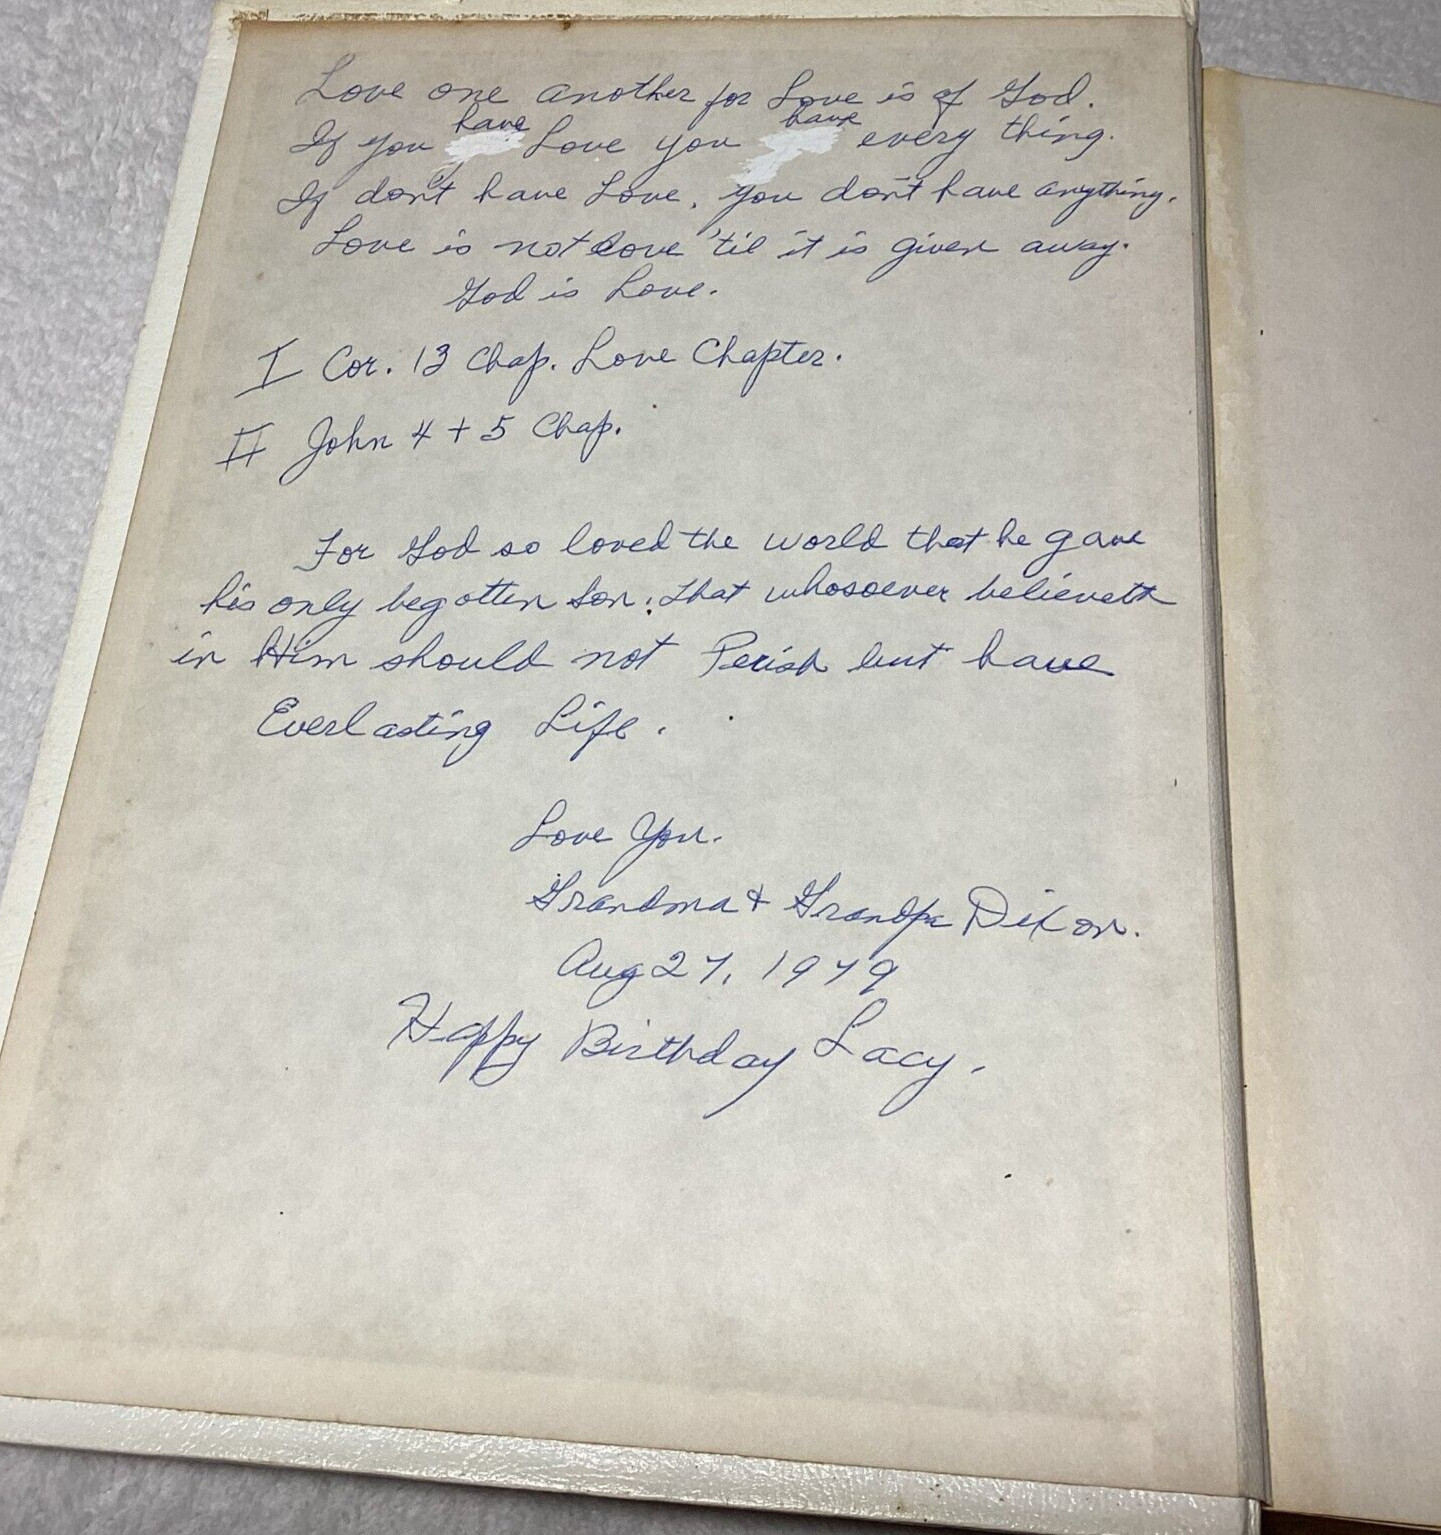 Love one another for Love is of God.
If you have Love you have every thing.
If don't have Love, you don't have anything.
Love is not love 'til it is given away.
God is Love.
I Cor. 13 Chap. Love Chapter.
II John 4 + 5 Chap.
For God so loved the world that he gave
his only begotten Son, that whosoever believeth
in Him should not Perish but have
Everlasting Life.
Love You.
Grandma & Grandpa Dixon.
Aug 27, 1979
Happy Birthday Lacy.